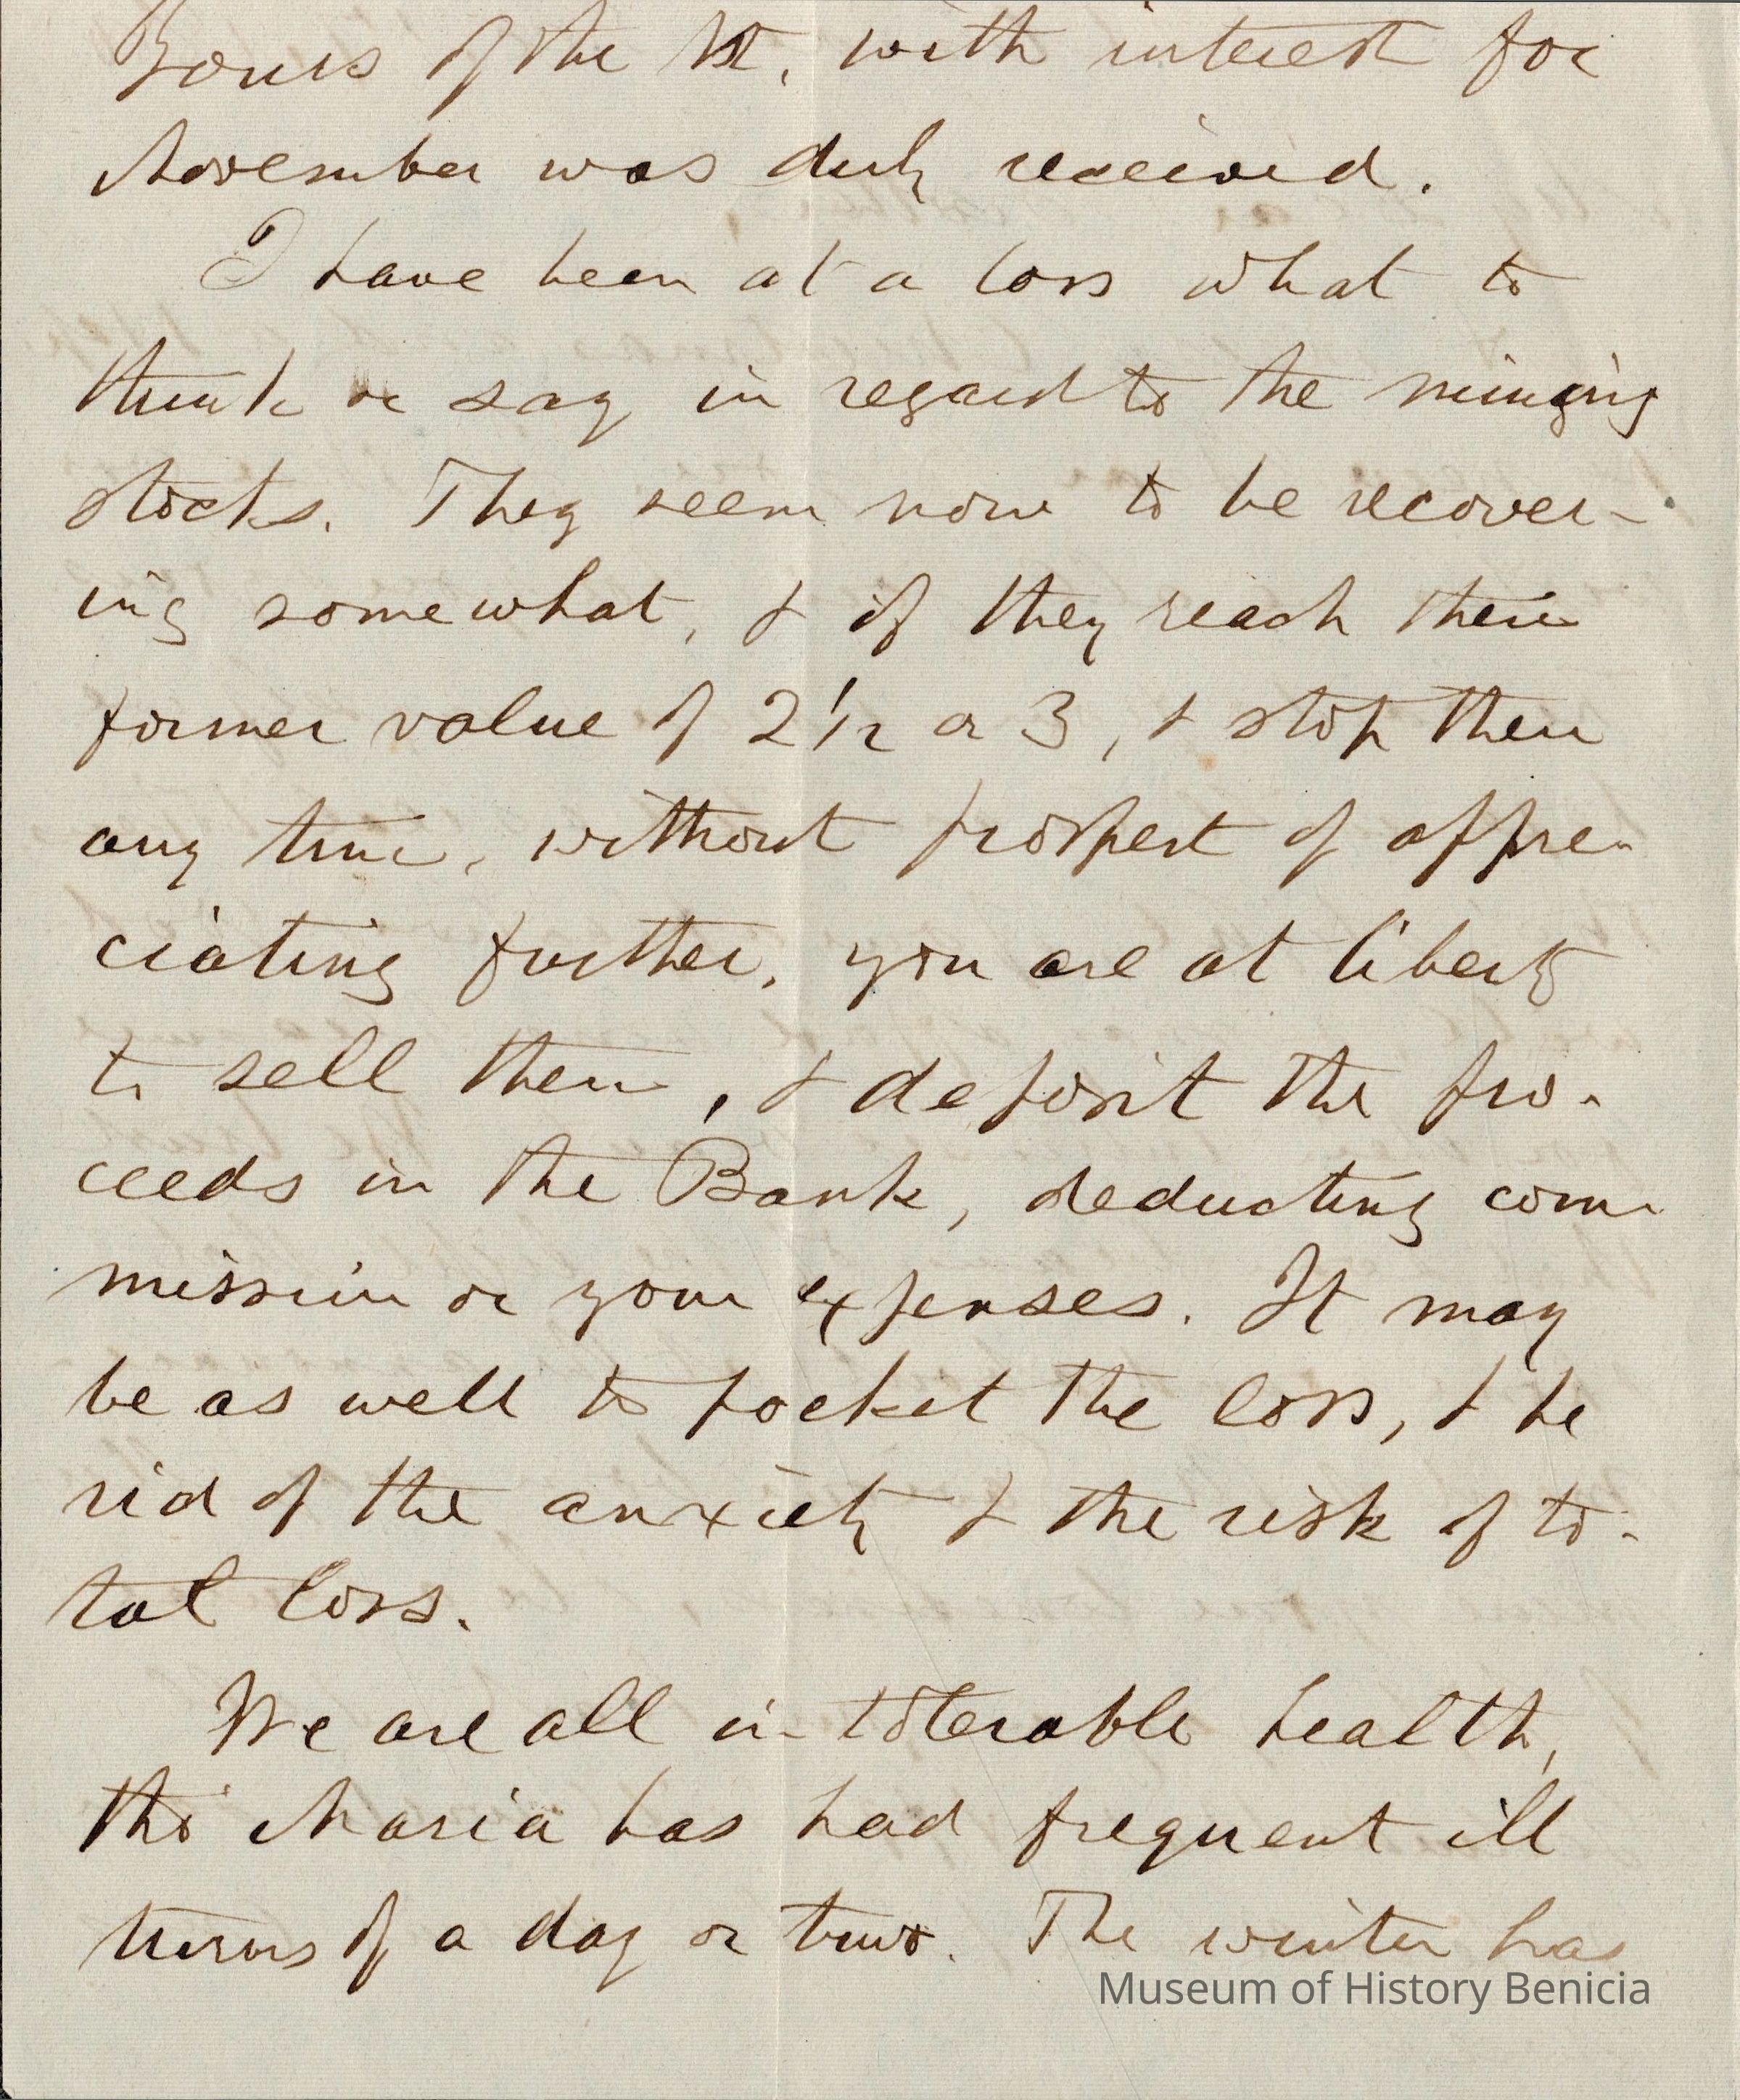 Yours of the 1st, with interest for
November was duly received.
I have been at a loss what to
think or say in regard to the minging
stocks. They seem now to be recover-
ing somewhat, & if they reach their
former value of 2 1/2 or 3, & stop there
any time, without prospect of appre-
ciating further, you are at liberty
to sell them, & deposit the pro-
ceeds in the Bank, deducting com-
mission or your expenses. It may
be as well to pocket the loss, & be
rid of the anxiety & the risk of to-
tal loss.
We are all in tolerable health,
tho' Maria has had frequent ill
turns of a day or two. The winter has
Museum of History Benicia